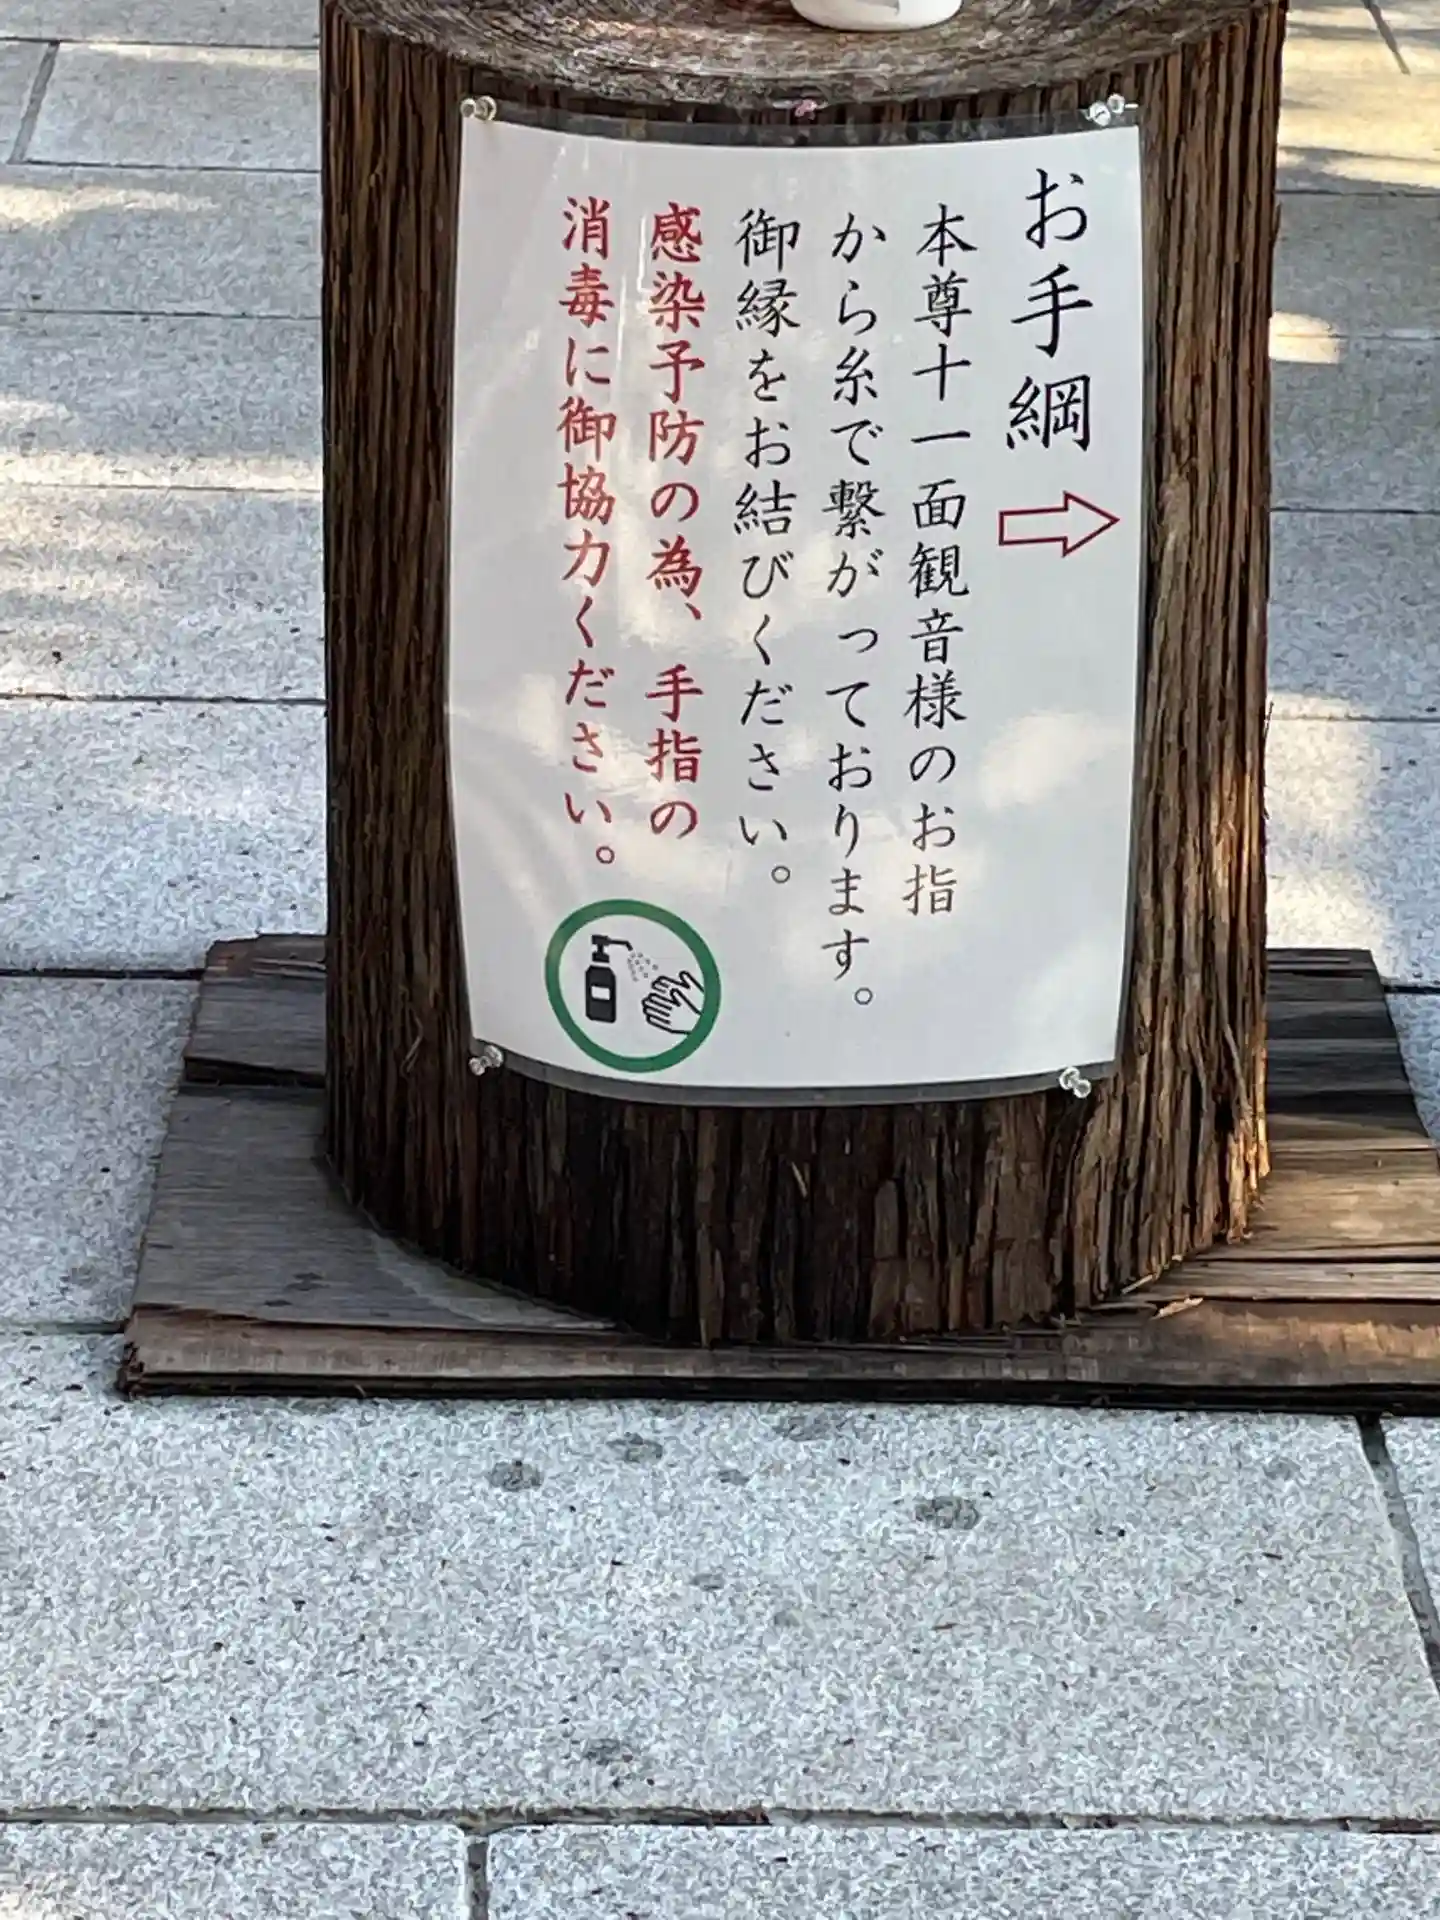 お手綱
本尊十一面観音様のお指
から糸で繋がっております。
御縁をお結びください。
感染予防の為、手指の
消毒に御協力ください。